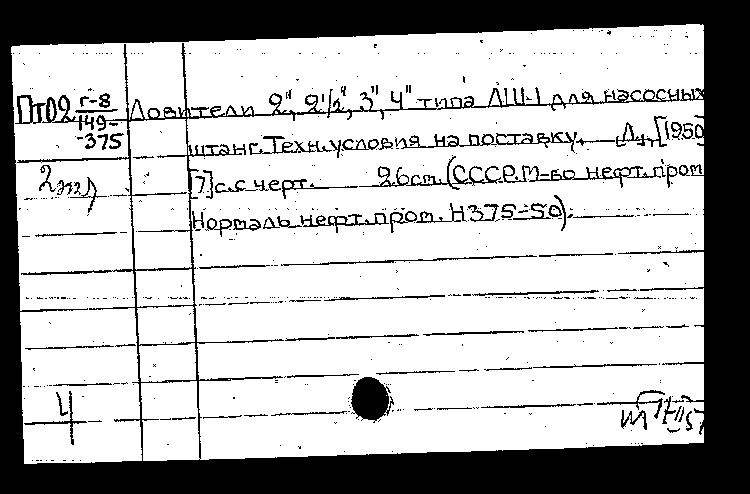 Пт02 г-8
149-
-375
Ловители 2", 2 1/2", 3", 4" типа ЛШ-1 для насосных
штанг. Техн. условия на поставку. [Л., [1950]
[7]с. с черт. 26 cm. (СССР. М-во нефт. пром
Нормаль нефт. пром. Н375-50).
4